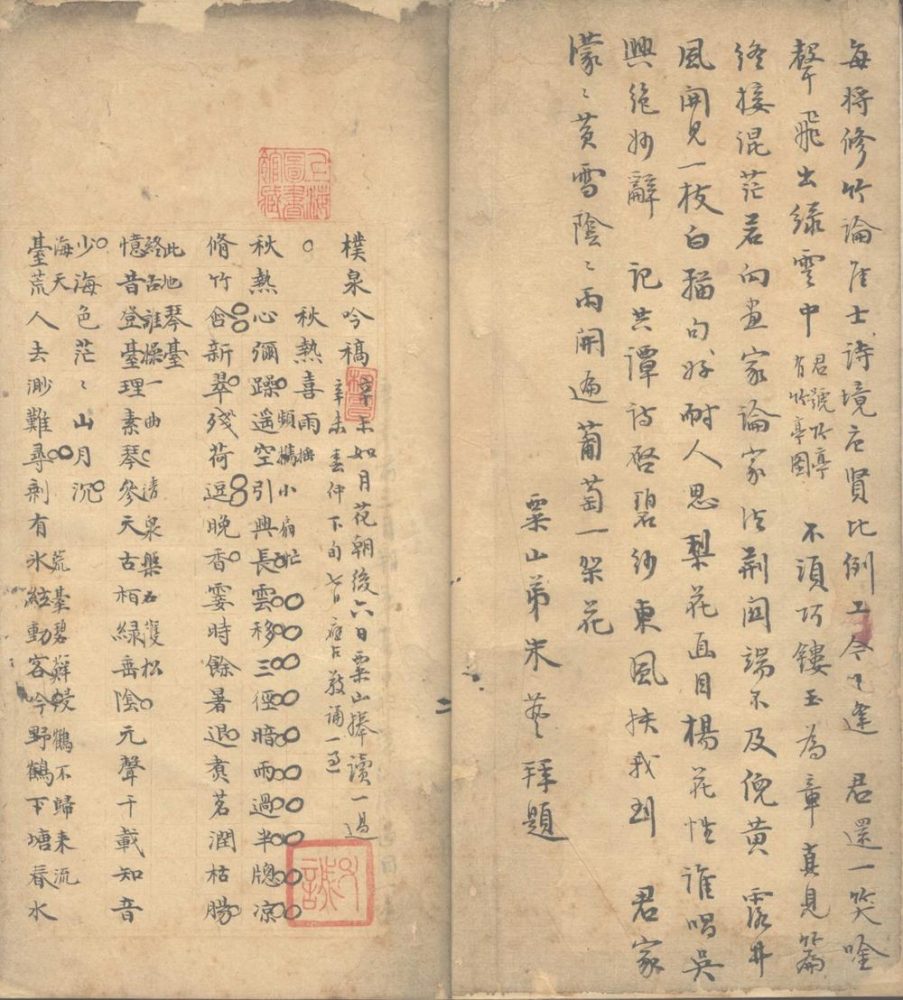 每將修竹論居士詩境應賢比例工今日逢 君還一笑吟
聲飛出綠雲中 君號竹亭
有竹亭圖 不須巧鏤玉為章真見篇
終接混茫若向畫家論家法荊關端不及倪黃 露井
風開見一枝白描句好耐人思梨花面目楊花性誰唱吳
興絕妙辭 記共譚詩啓碧紗東風扶我到 君家
濛濛黃雪陰陰雨開遍葡萄一架花
栗山弟朱 拜題
上海
圖書
館藏
樸泉吟稿
辛未如月花朝後六日栗山捧讀一過
辛未春仲下旬七日 敬誦一過
秋熱喜雨
秋熱心彌躁頻攜小扇忙
遙空引興長雲移三徑暗雨過半牕涼
脩竹含新翠殘荷逗晚香霎時餘暑退煑茗潤枯腸
琴臺
憶昔登臺理素琴參天古栢綠垂陰元聲千載知音
此地
終古誰操一曲清泉槃石雙松
少海色茫茫山月沉
海天
荒臺碧蘚侵鶴不歸來流
臺荒人去渺難尋剩有氷絃動客吟野鶴下塘春水